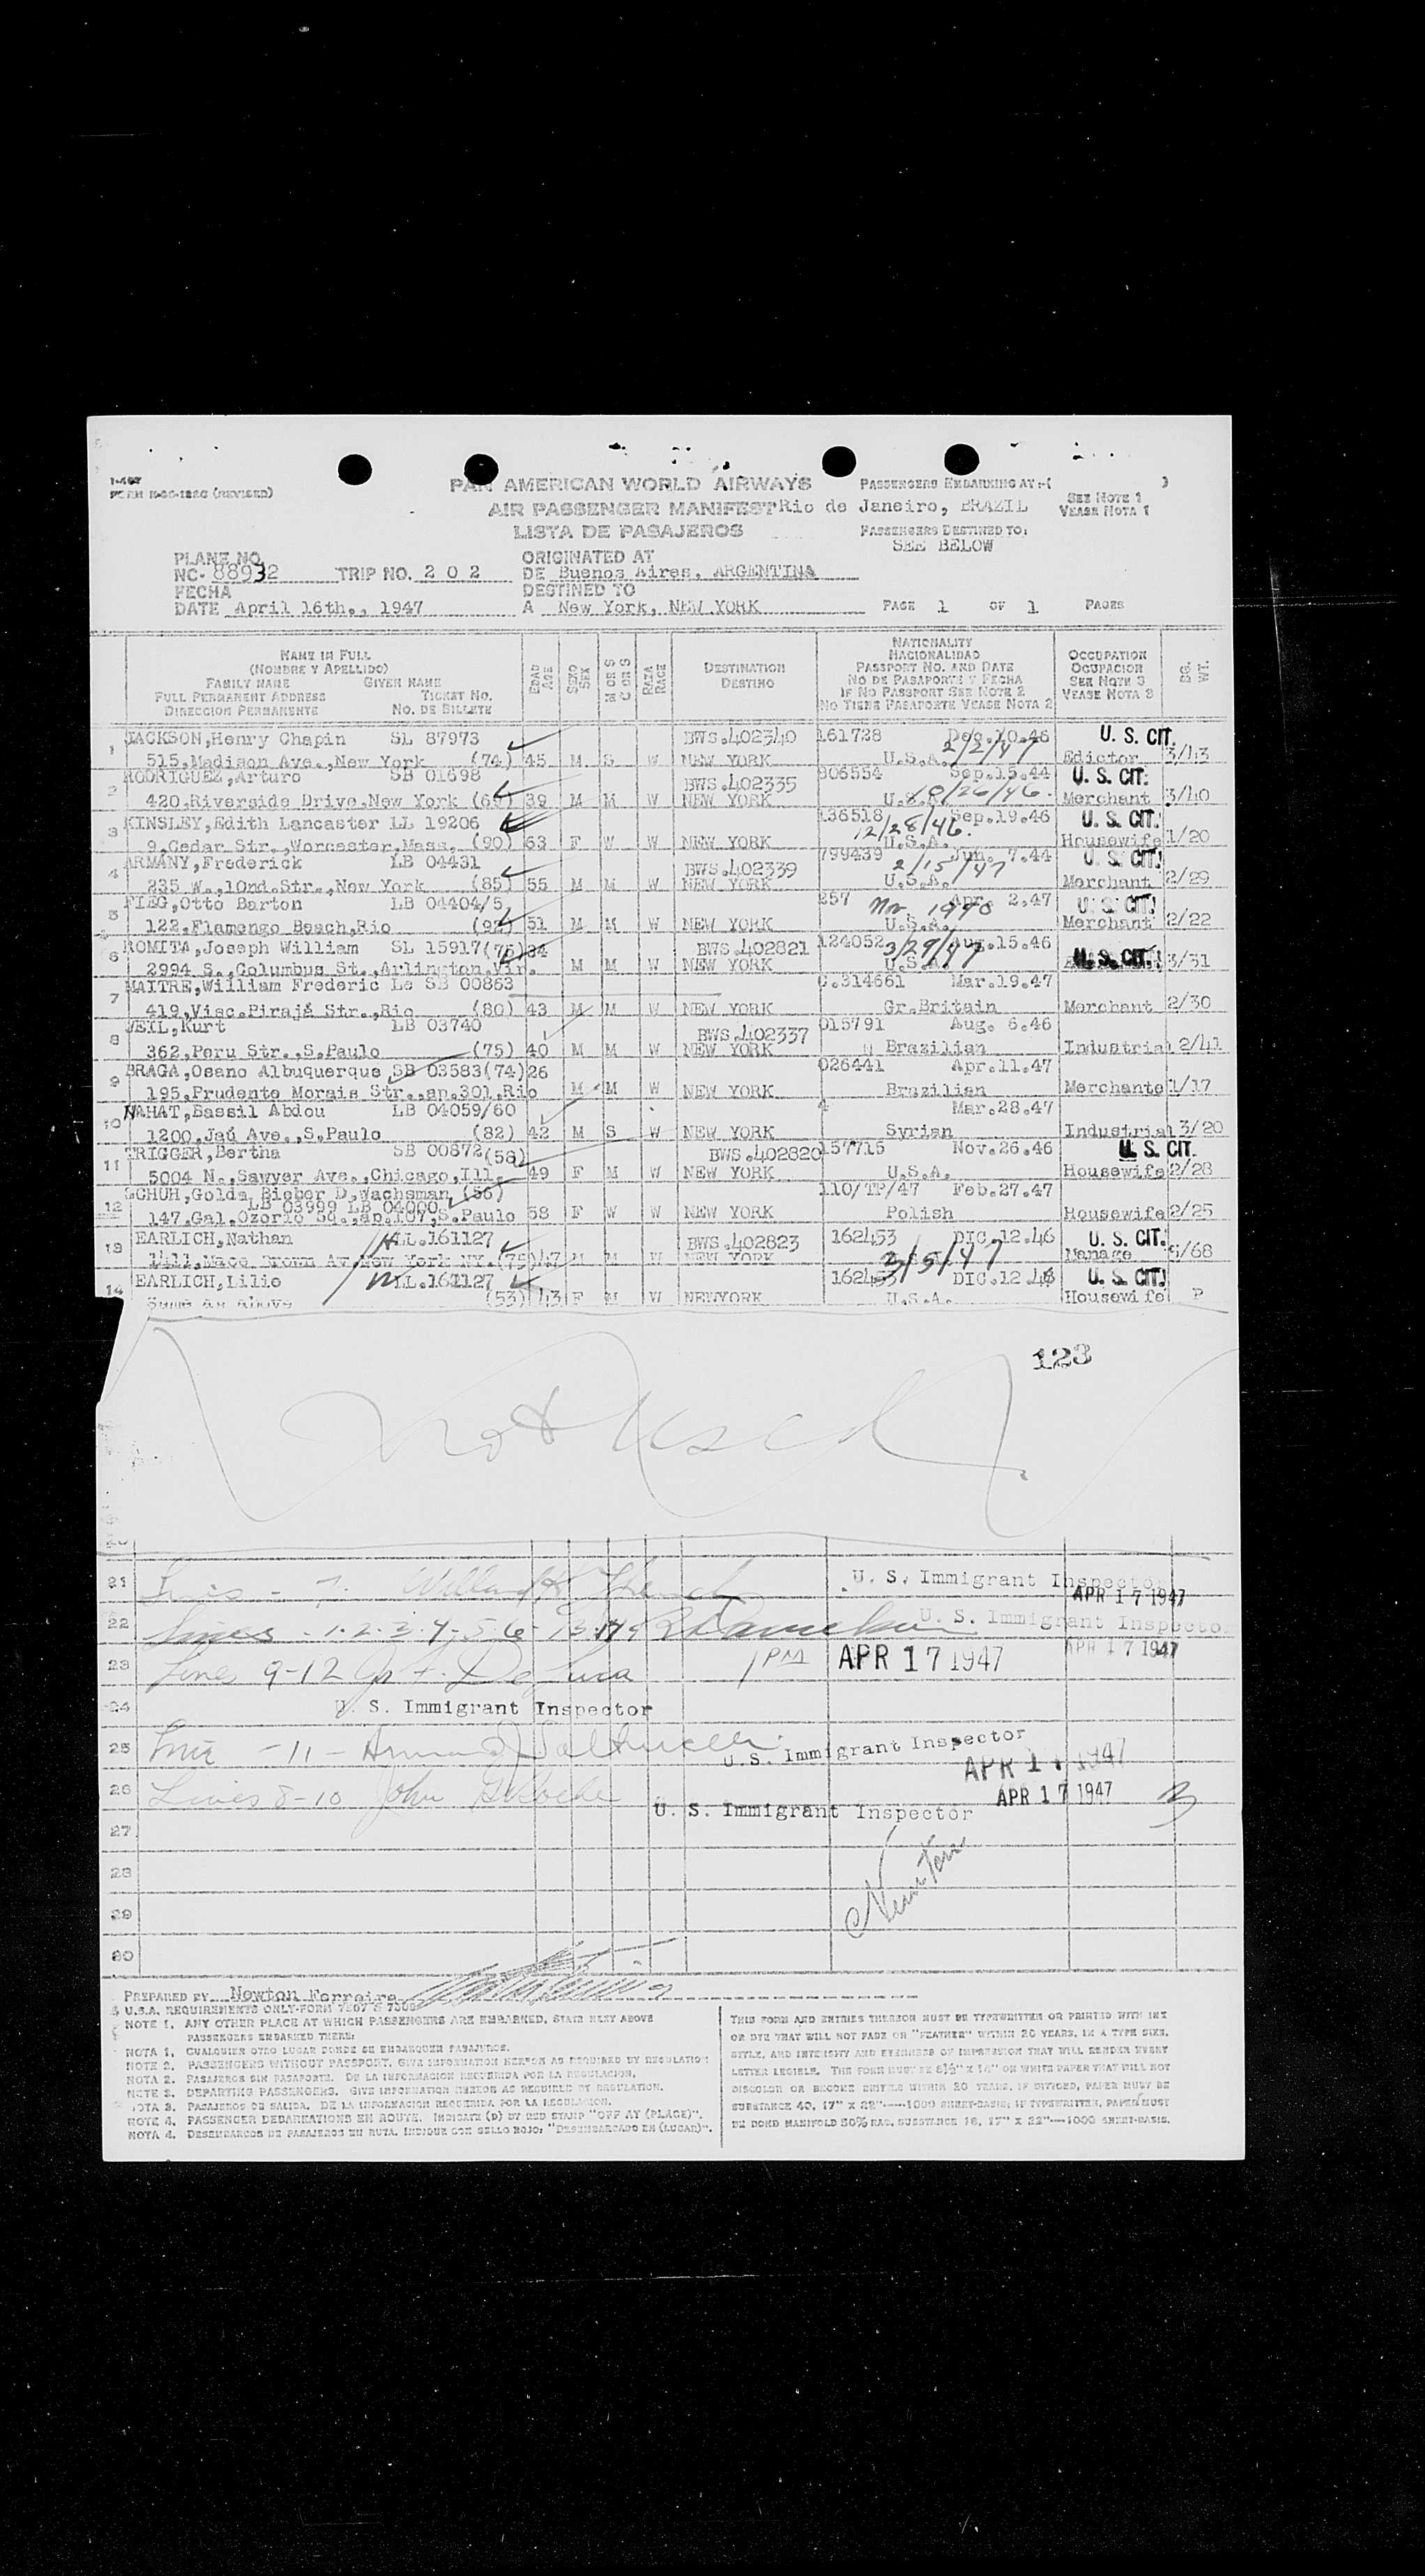 I-467
FORM (REVISED)
PAN AMERICAN WORLD AIRWAYS
PASSENGERS EMBARKING AT:-( )
AIR PASSENGER MANIFEST Rio de Janeiro, BRAZIL
SEE NOTE 1
VEASE NOTA 1
LISTA DE PASAJEROS
PASSENGERS DESTINED TO:
SEE BELOW
PLANE NO.
NC- 88932 TRIP NO. 2 0 2
ORIGINATED AT
DE Buenos Aires, ARGENTINA
FECHA
DATE April 16th., 1947
DESTINED TO
A New York, NEW YORK
PAGE 1 OF 1 PAGES
NAME IN FULL
(NOMBRE Y APELLIDO)
FAMILY NAME GIVEN NAME
FULL PERMANENT ADDRESS TICKET NO.
DIRECCION PERMANENTE NO. DE BILLETE
EDAD AGE
SEXO SEX
M OR S
C OR S
RAZA RACE
DESTINATION
DESTINO
NATIONALITY
NACIONALIDAD
PASSPORT NO. AND DATE
NO DE PASAPORTE Y FECHA
IF NO PASSPORT SEE NOTE 2
NO TIENE PASAPORTE VEASE NOTA 2
OCCUPATION
OCUPACION
SEE NOTE 3
VEASE NOTA 3
BG. WT.
1 JACKSON,Henry Chapin SL 87973 BWS.402340 161728 Dec.10.46 U. S. CIT.
515,Madison Ave.,New York (74) 45 M S W NEW YORK U.S.A. 2/2/47 Edictor 3/43
2 RODRIGUEZ,Arturo SB 01698 BWS.402335 806554 Sep.15.44 U. S. CIT.
420,Riverside Drive,New York 39 M M W NEW YORK 10/26/46. Merchant 3/40
3 KINSLEY,Edith Lancaster LL 19206 138518 Sep.19.46 U. S. CIT.
9,Cedar Str.,Worcester,Mass. (90) 63 F W W NEW YORK 12/28/46. U.S.A. Housewife 1/20
4 ARMANY,Frederick LB 04431 BWS.402339 799439 Jun. 7.44 U. S. CIT.
235 W.,10nd.Str.,New York (85) 55 M M W NEW YORK 2/15/47 U.S.A. Merchant 2/29
5 FIEG,Otto Barton LB 04404/5 257 Apr. 2.47 U. S. CIT.
122,Flamengo Beach,Rio 51 M M W NEW YORK Nov 1940 U.S.A. Merchant 2/22
6 ROMITA,Joseph William SL 15917(75)34 BWS.402821 124052 Aug.15.46
2994 S.,Columbus St.,Arlington,Vir. M M W NEW YORK 3/29/47 U.S.A. U. S. CIT. 3/31
7 MAITRE,William Frederic Le SB 00863 C.314661 Mar.19.47
419,Visc.Pirajá Str.,Rio (80) 43 M M W NEW YORK Gr.Britain Merchant 2/30
8 WEIL,Kurt LB 03740 BWS.402337 015791 Aug. 6.46
362,Peru Str.,S.Paulo (75) 40 M M W NEW YORK Brazilian Industrial 2/41
9 BRAGA,Osano Albuquerque SB 03583(74)26 026441 Apr.11.47
195,Prudente Morais Str.,ap.301,Rio M M W NEW YORK Brazilian Merchante 1/17
10 NAHAT,Bassil Abdou LB 04059/60 4 Mar.28.47
1200,Jaú Ave.,S.Paulo (82) 42 M S W NEW YORK Syrian Industrial 3/20
11 TRIGGER,Bertha SB 00872(58) BWS.402820 157715 Nov.26.46 U. S. CIT.
5004 N.,Sawyer Ave.,Chicago,Ill. 49 F M W NEW YORK U.S.A. Housewife 2/28
12 SCHUH,Golda Bieber D,Wachsman (56) 110/TP/47 Feb.27.47
LB 03999 LB 04000
147,Gal.Ozorio Sq.,ap.107,S.Paulo 58 F W W NEW YORK Polish Housewife 2/25
13 EARLICH,Nathan LL.161127 BWS.402823 162453 DIC.12.46 U. S. CIT.
1411,Mace Brown Av New York NY. (75) 47 M M W NEW YORK 2/5/47 Manage 5/68
14 EARLICH,Lilie LL.161127 162453 DIC.12.46 U. S. CIT.
Same as above (53) 43 F M W NEWYORK U.S.A. Housewife P
123
Not Used
21 Lines - 7. U. S. Immigrant Inspector
APR 17 1947
22 Lines - 1-2-3-4-5-6-13-14 U. S. Immigrant Inspector
APR 17 1947
23 Lines 9-12 1 PM APR 17 1947
24 U. S. Immigrant Inspector
25 Line -11- U. S. Immigrant Inspector
APR 17 1947
26 Lines 8-10 John APR 17 1947
U. S. Immigrant Inspector
27
28
29
30
PREPARED BY Newton Ferreira
U.S.A. REQUIREMENTS ONLY-FORM 7507 & 7508
NOTE 1. ANY OTHER PLACE AT WHICH PASSENGERS ARE EMBARKED, STATE NEXT ABOVE
PASSENGERS EMBARKED THERE:
NOTA 1. CUALQUIER OTRO LUGAR DONDE SE EMBARQUEN PASAJEROS.
NOTE 2. PASSENGERS WITHOUT PASSPORT. GIVE INFORMATION HEREON AS REQUIRED BY REGULATION
NOTA 2. PASAJEROS SIN PASAPORTE. DE LA INFORMACION REQUERIDA POR LA REGULACION.
NOTE 3. DEPARTING PASSENGERS. GIVE INFORMATION HEREON AS REQUIRED BY REGULATION.
NOTA 3. PASAJEROS DE SALIDA. DE LA INFORMACION REQUERIDA POR LA REGULACION.
NOTE 4. PASSENGER DEBARKATIONS EN ROUTE. INDICATE (D) BY RED STAMP "OFF AT (PLACE)".
NOTA 4. DESEMBARCOS DE PASAJEROS EN RUTA. INDIQUE CON SELLO ROJO: "DESEMBARCADO EN (LUGAR)".
THIS FORM AND ENTRIES THEREON MUST BE TYPEWRITTEN OR PRINTED WITH INK
OR DYE THAT WILL NOT FADE OR "FEATHER" WITHIN 20 YEARS, IN A TYPE SIZE,
STYLE, AND INTENSITY AND EVENNESS OF IMPRESSION THAT WILL RENDER EVERY
LETTER LEGIBLE. THE FORM MUST BE 8½" X 14" ON WHITE PAPER THAT WILL NOT
DISCOLOR OR BECOME BRITTLE WITHIN 20 YEARS. IF DITTOED, PAPER MUST BE
SUBSTANCE 40, 17" X 22"—1000 SHEET-BASIS; IF TYPEWRITTEN, PAPER MUST
BE BOND MANIFOLD 50% RAG, SUBSTANCE 16, 17" X 22"—1000 SHEET-BASIS.